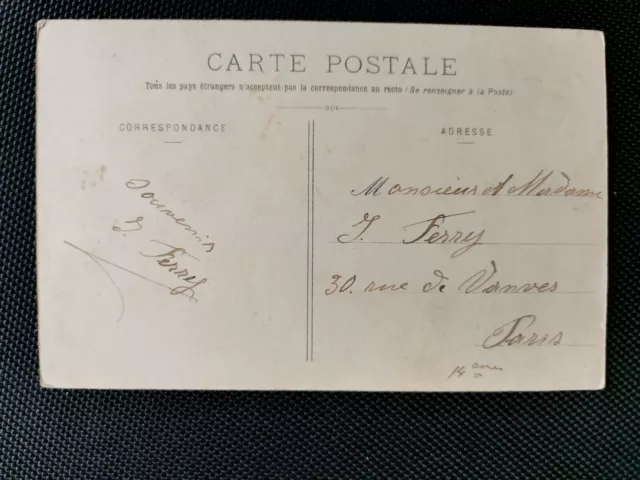 CARTE POSTALE
Tous les pays étrangers n'acceptent pas la correspondance au recto (Se renseigner à la Poste)
CORRESPONDANCE
Souvenir
J. Ferry
ADRESSE
Monsieur et Madame
J. Ferry
30. rue de Vanves
Paris
14 eme